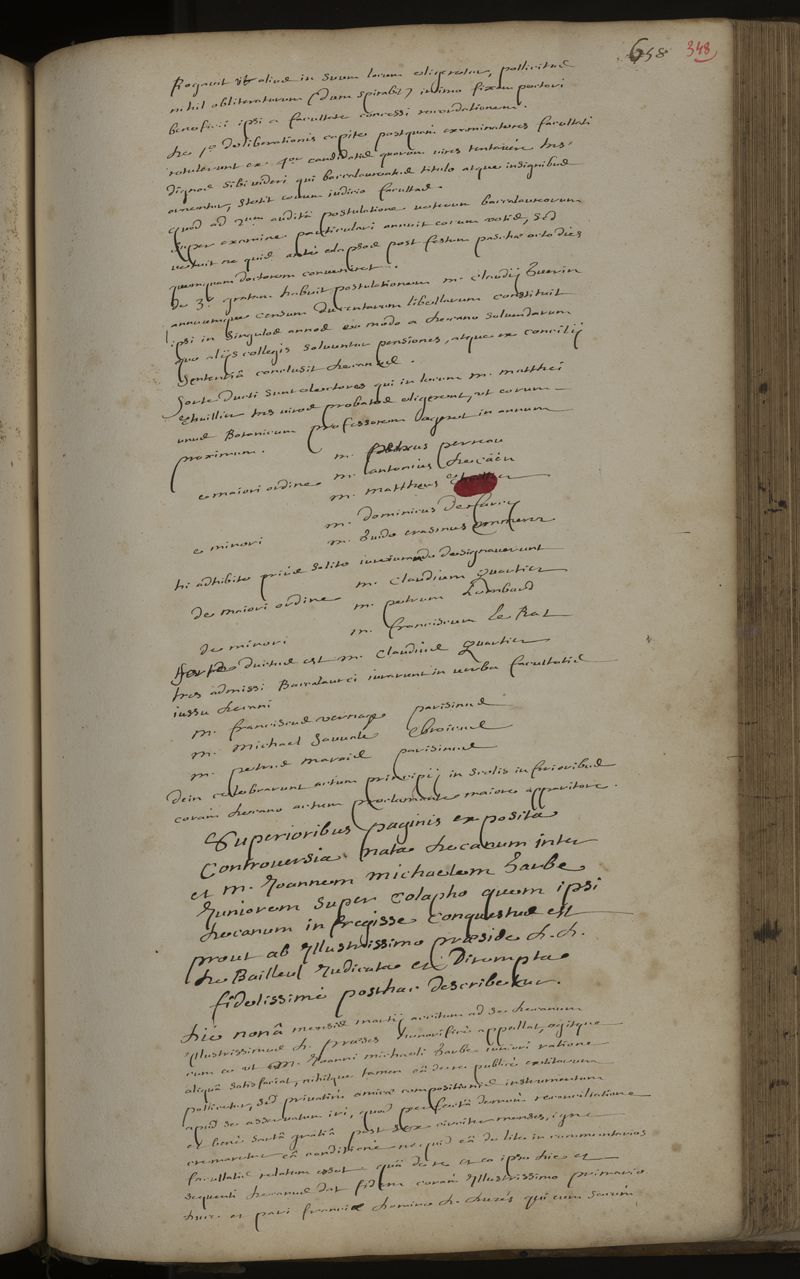 658 348
Rogavit ut alius in suum locum eligeretur, pollicitus
nihil obliteraturum (dum spirabit) intimo fixum pectori
beneficii ipsi a facultate concessi recordationem.
De 1º deliberationis capite postquam examinatores facultati
retulerunt ex 4or candidatis quorum vires tentavere tres
dignos sibi videri qui baccalaureatus titulo atque insignibus
ornentur, stetit eorum iudicio facultas.
quod ad 2um audita postulatione veterum baccalaureorum
super examine particulari annuit eorum votis, sed
vetuit ne quis ante elapsos post festum paschae octo dies
quemquam doctorem conveniret.
De 3º gratam habuit postulationem m. Claudij Guerin
annuumque censum ducentarum libellarum constituit
ipsi in singulos annos eo modo a decano solvendarum
quo alijs collegis solvuntur pensiones, atque ex concilij
sententiâ conclusit decanus.
Sorte ducti sunt electores qui in locum m. matthei
Thuillier tres viros probatos eligerent, ut eorum
unus Botanicum professorem ageret in annum
proximum.
m. petrus perreau
e maiori ordine m. antonius de Caen
m. mattheus
m. dominicus
e minori m. Guido erasmus emmerez
hi adhibito prius solito iureiurando designaverunt
de maiori ordine m. Claudium Quartier
m. petrum Lombard
de minori m. franciscum Le Rat
sorte ductus est m. Claudius Quartier
tres admissi Baccalaurei iurarunt in verba facultatis
iussu decani
m. franciscus vernage parisinus
m. michael Sauvale Ebroicus
m. petrus parisinus
Dein celebrarunt actum principij in scolis inferioribus
coram decano actum proclamante maiore apparitore.
Superioribus paginis exposita
Controversia nata decanum inter
et m. Joannem michaelem Garbe
Juniorem super colapho quem ipsi
decanum infregisse conquestus est
prout ab Illustrissimo praeside d.d.
de Bailleul Judicata et Dirempta
fidelissime posthac describetur.
Die nonâ mensis martij accitum ad se decanum
Illustrissimus d. praeses honorifice appellat, agitque
cum eo ut m. Joanni michaeli Garbe iuniori ratione
aliquâ satisfaciat, nihilque tamen eâ de re publice extiturum
pollicetur, sed privatim amicae compositionis instrumentum
apud se asservatum iri, quod perfectâ demum reconciliatione
et bene sartâ gratiâ post sex circiter menses, igne
cremaretur eâ conditione ne quid eâ de lite in commentarios
facultatis relatum esset quâ de re et eo ipso die et
sequenti decanus dat fidem coram Illustrissimo primario
duce et pari franciae domino d. qui cum secum